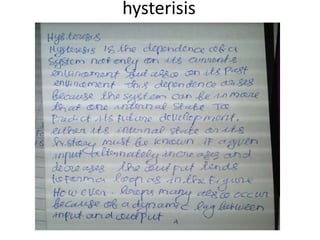 hysterisis
Hysteresis
Hysteresis is the dependence of a
system not only on its currents
enviroment but also on its past
enviroment this dependence arises
because the system can be in more
that one internal state To
Predict its future development,
either its internal state or its
history must be known if a given
input alternately increases and
decreases the output tends
to form a loop as in the figure
However - loops many also occur
because of a dynamic lag between
input and output